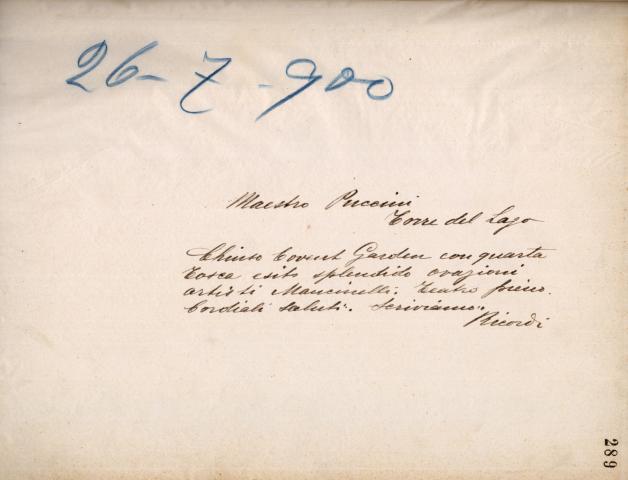 26-7-900
Maestro Puccini
Torre del Lago
Chiuso Covent Garden con quarta
Tosca esito splendido ovazioni
artisti Mancinelli. Teatro
Cordiali saluti. Scriviamo.
Ricordi
289